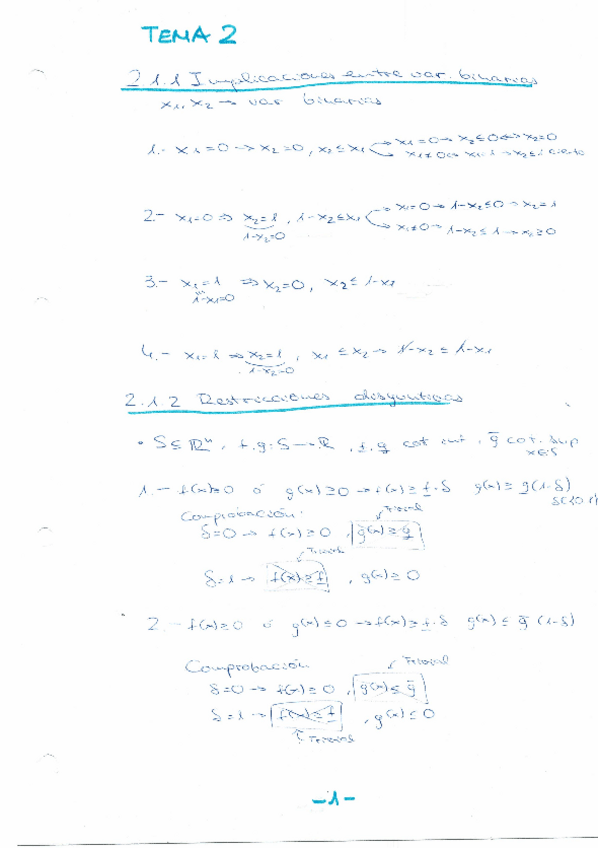 TEMA 2
2.1.1 Implicaciones entre var. binarias
x₁, x₂ → var binarias
1.- x₁=0 → x₂=0, x₂≤x₁ → x₁=0 → x₂≤0 ↔ x₂=0
→ x₁≠0 → x₁=1 → x₂≤1 cierto
2.- x₁=0 ⇒ x₂=1, 1-x₂≤x₁ → x₁=0 → 1-x₂≤0 → x₂=1
1-x₂=0 → x₁≠0 → 1-x₂≤1 → x₂≥0
3.- x₁=1 ⇒ x₂=0, x₂≤1-x₁
1-x₁=0
4.- x₁=1 ⇒ x₂=1, x₁≤x₂ → 1-x₂≤1-x₁
1-x₂=0
2.1.2 Restricciones disyuntivas
• S⊆ℝⁿ, f,g: S→ℝ, f, g cot inf, g̅ cot. sup
x∈S
1.- f(x)≥0 ó g(x)≥0 → f(x)≥f·δ g(x)≥g(1-δ)
Comprobación: Trivial
δ=0 → f(x)≥0, g(x)≥g
Trivial
δ=1 → f(x)≥f, g(x)≥0
2.- f(x)≥0 ó g(x)≤0 → f(x)≥f·δ g(x)≤g̅(1-δ)
Comprobación Trivial
δ=0 → f(x)≥0, g(x)≤g̅
δ=1 → f(x)≤f, g(x)≤0
Trivial
-1-